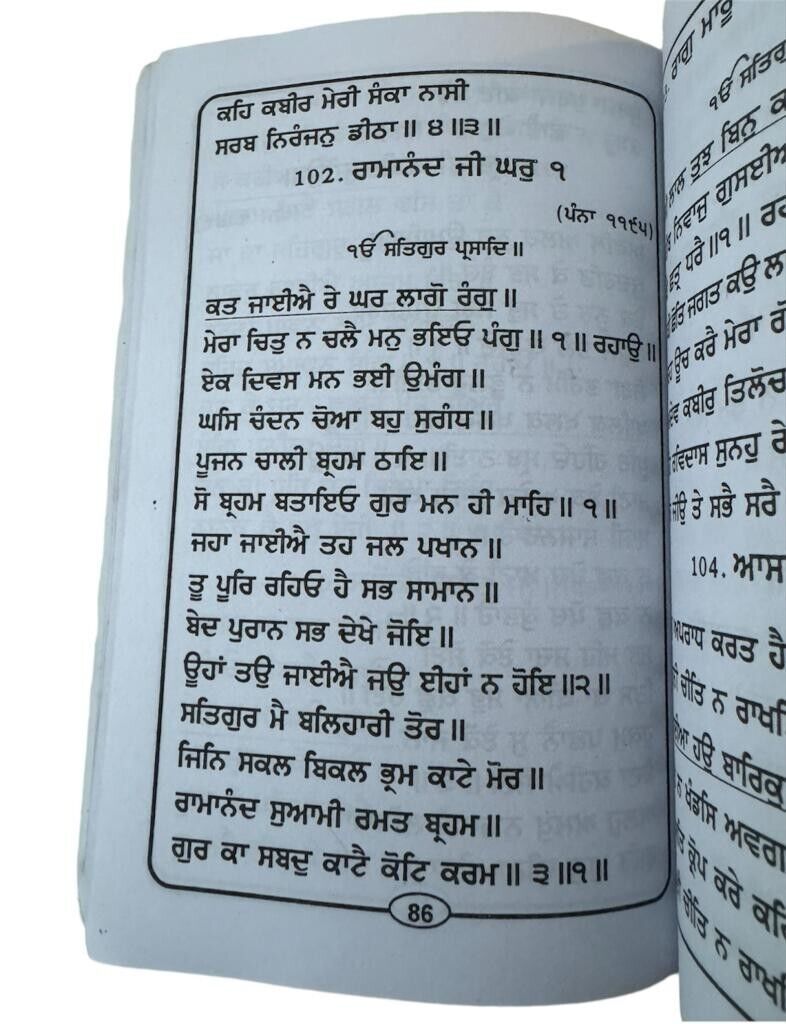 ਕਹਿ ਕਬੀਰ ਮੇਰੀ ਸੰਕਾ ਨਾਸੀ
ਸਰਬ ਨਿਰੰਜਨੁ ਡੀਠਾ॥ ੪॥੩॥
102. ਰਾਮਾਨੰਦ ਜੀ ਘਰੁ ੧
(ਪੰਨਾ ੧੧੯੫)
ੴ ਸਤਿਗੁਰ ਪ੍ਰਸਾਦਿ॥
ਕਤ ਜਾਈਐ ਰੇ ਘਰ ਲਾਗੋ ਰੰਗੁ॥
ਮੇਰਾ ਚਿਤੁ ਨ ਚਲੈ ਮਨੁ ਭਇਓ ਪੰਗੁ॥ ੧॥ ਰਹਾਉ॥
ਏਕ ਦਿਵਸ ਮਨ ਭਈ ਉਮੰਗ॥
ਘਸਿ ਚੰਦਨ ਚੋਆ ਬਹੁ ਸੁਗੰਧ॥
ਪੂਜਨ ਚਾਲੀ ਬ੍ਰਹਮ ਠਾਇ॥
ਸੋ ਬ੍ਰਹਮ ਬਤਾਇਓ ਗੁਰ ਮਨ ਹੀ ਮਾਹਿ॥ ੧॥
ਜਹਾ ਜਾਈਐ ਤਹ ਜਲ ਪਖਾਨ॥
ਤੂ ਪੂਰਿ ਰਹਿਓ ਹੈ ਸਭ ਸਾਮਾਨ॥
ਬੇਦ ਪੁਰਾਨ ਸਭ ਦੇਖੇ ਜੋਇ॥
ਊਹਾਂ ਤਉ ਜਾਈਐ ਜਉ ਈਹਾਂ ਨ ਹੋਇ॥੨॥
ਸਤਿਗੁਰ ਮੈ ਬਲਿਹਾਰੀ ਤੋਰ॥
ਜਿਨਿ ਸਕਲ ਬਿਕਲ ਭ੍ਰਮ ਕਾਟੇ ਮੋਰ॥
ਰਾਮਾਨੰਦ ਸੁਆਮੀ ਰਮਤ ਬ੍ਰਹਮ॥
ਗੁਰ ਕਾ ਸਬਦੁ ਕਾਟੈ ਕੋਟਿ ਕਰਮ॥ ੩॥੧॥
86
ਰਾਗੁ ਮਾਰੂ
ੴ ਸਤਿਗੁਰ
ਲਾਲ ਤੁਝ ਬਿਨੁ
ਨਿਵਾਜੁ ਗੁਸਈਆ
ਧਰੈ॥੧॥
ਛੋਤਿ ਜਗਤ ਕਉ
ਊਚ ਕਰੈ ਮੇਰਾ
ਕਬੀਰੁ ਤਿਲੋਚ
ਰਵਿਦਾਸ ਸੁਨਹੁ ਰੇ
ਜੀਉ ਤੇ ਸਭੈ ਸਰੈ
104. ਆਸਾ
ਅਪਰਾਧ ਕਰਤ ਹੈ
ਚੀਤਿ ਨ ਰਾਖਸਿ
ਹਉ ਬਾਰਿਕੁ
ਨ ਖੰਡਸਿ ਅਵਗ
ਕ੍ਰੋਪ ਕਰੇ ਕਰਿ
ਚੀਤਿ ਨ ਰਾਖਸਿ